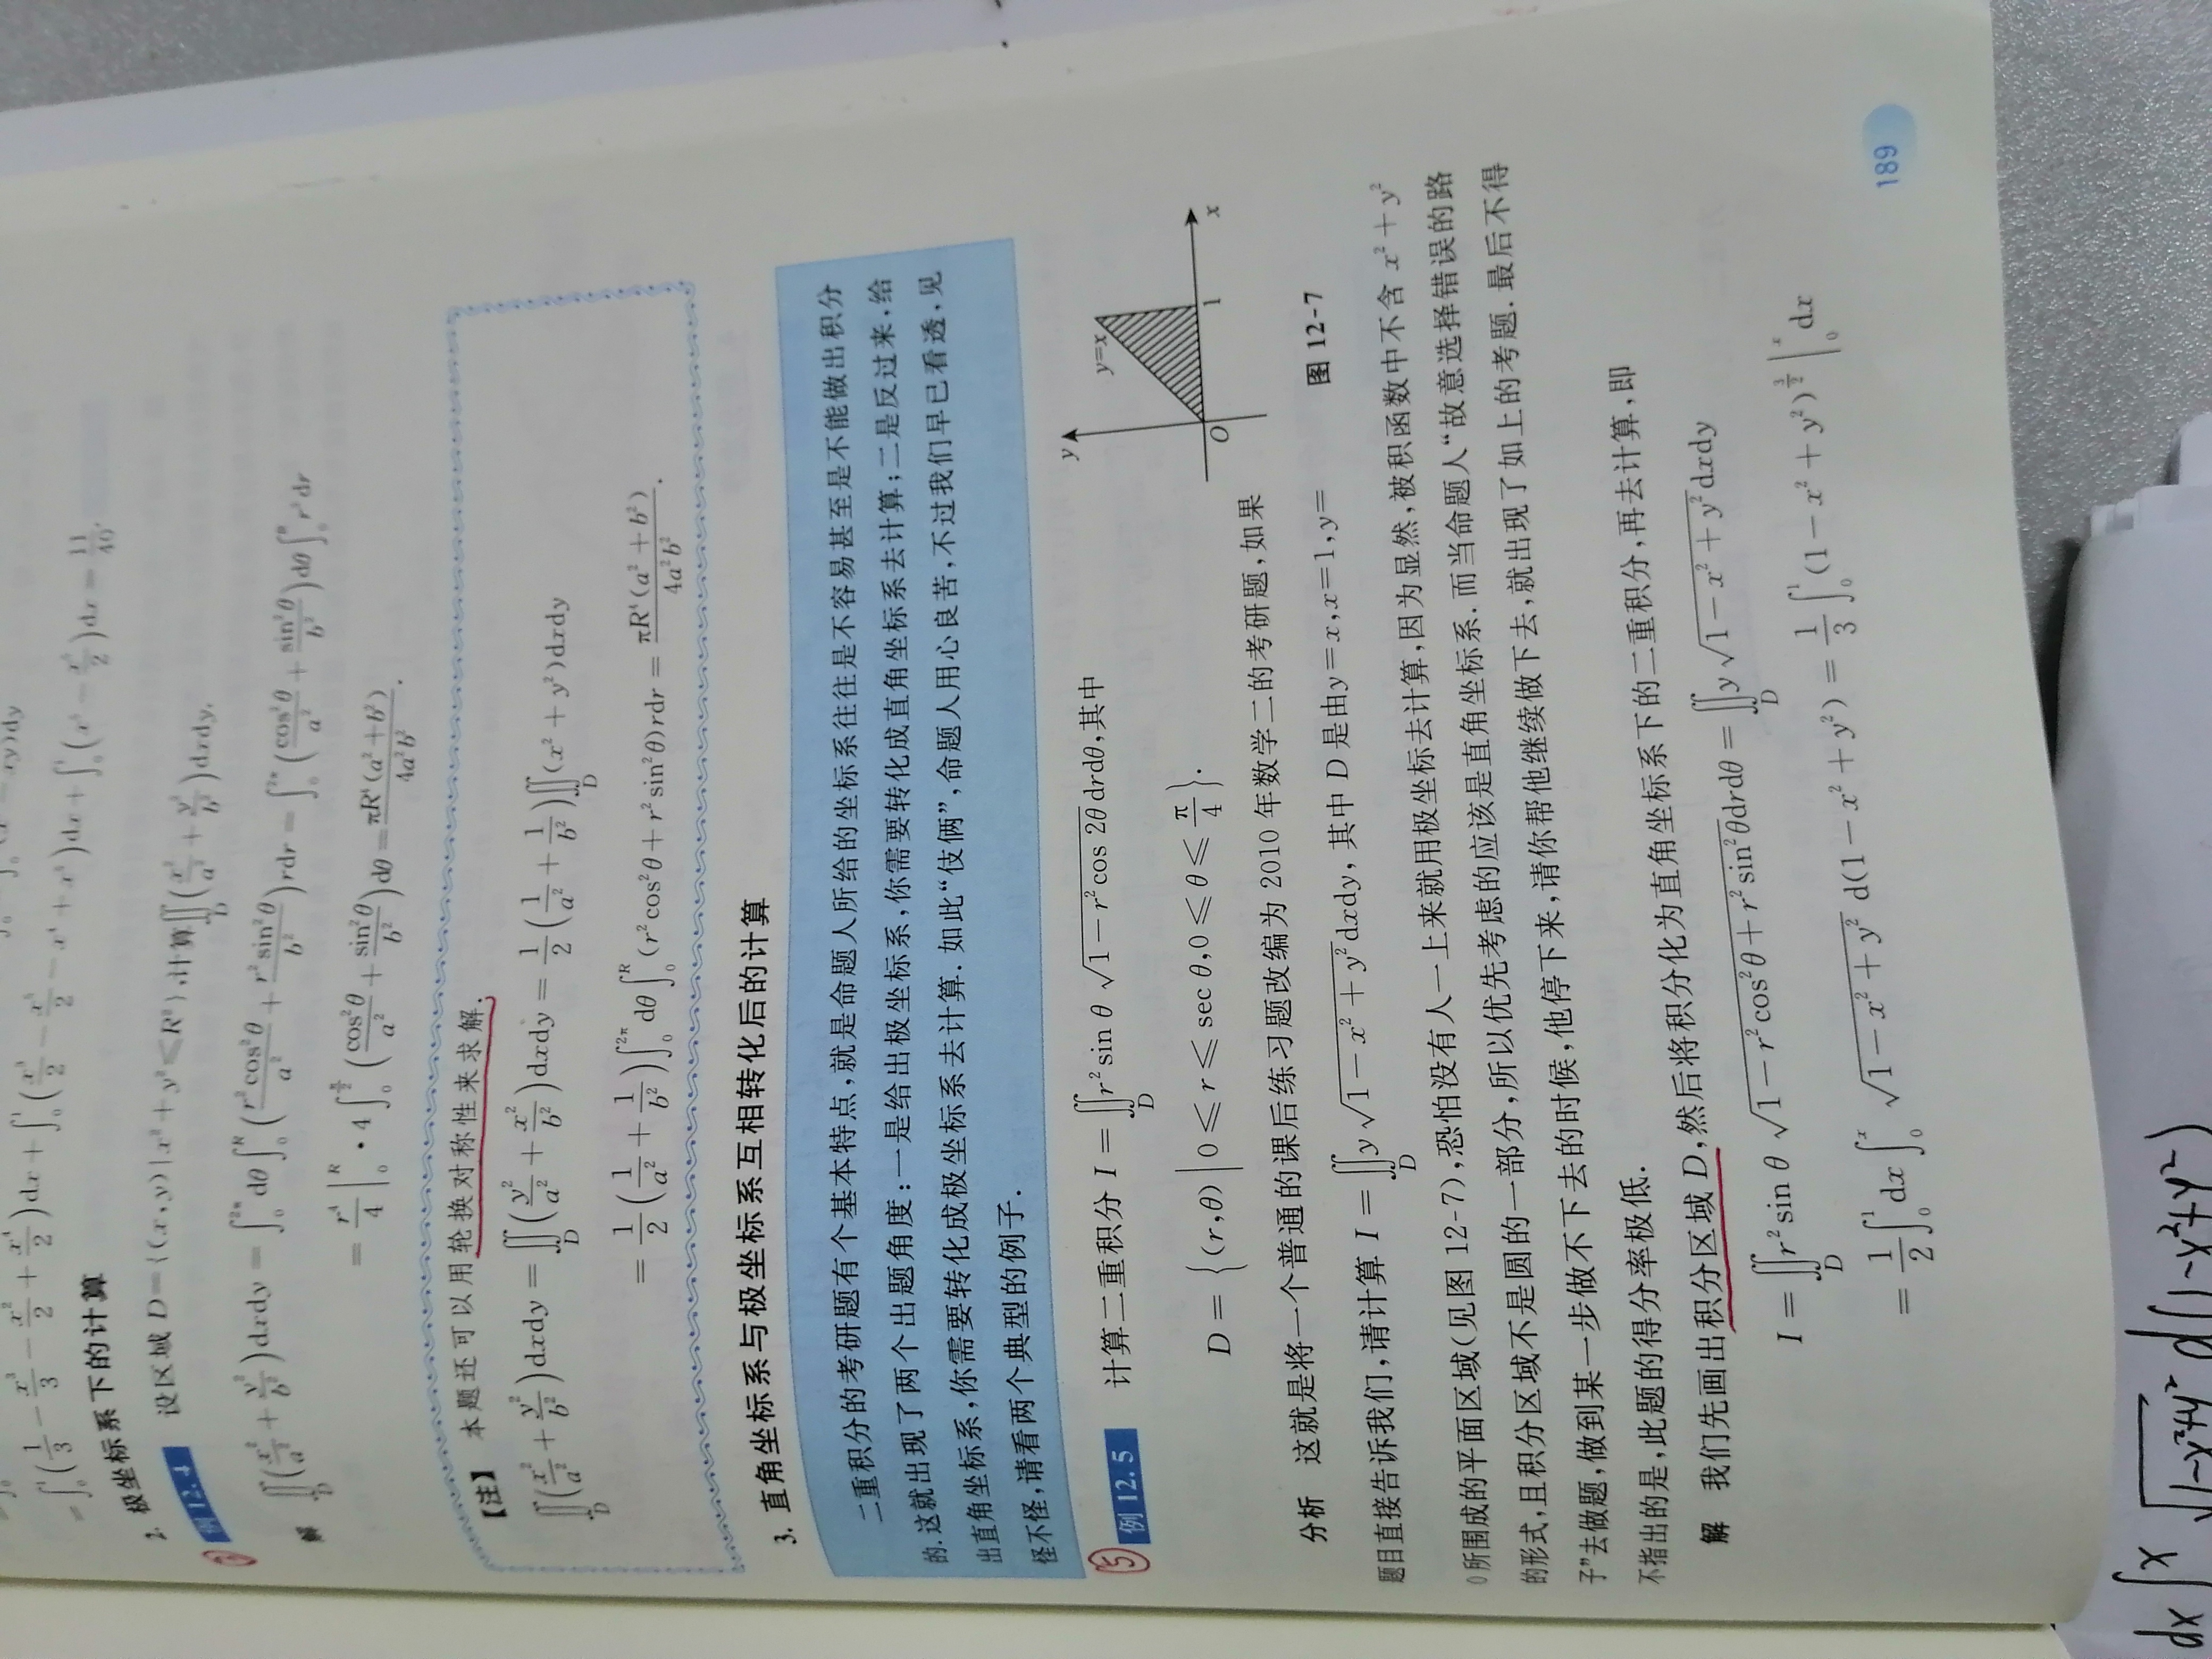 = ∫₀¹(1/3 − x³/3 − x²/2 + x⁴/2)dx + ∫₀¹(x³/2 − x⁵/2 − x⁴ + x³)dx + ∫₀¹(x³ − x⁵/2)dx = 11/40.
2. 极坐标系下的计算
例 12.4 设区域 D={(x,y)|x²+y²≤R²},计算∬_D(x²/a²+y²/b²)dxdy.
解 ∬_D(x²/a²+y²/b²)dxdy = ∫₀^{2π}dθ∫₀^R(r²cos²θ/a² + r²sin²θ/b²)rdr = ∫₀^{2π}(cos²θ/a² + sin²θ/b²)dθ∫₀^R r³dr
= r⁴/4|₀^R · 4∫₀^{π/2}(cos²θ/a² + sin²θ/b²)dθ = πR⁴(a²+b²)/4a²b².
【注】 本题还可以用轮换对称性来求解.
∬_D(x²/a²+y²/b²)dxdy = ∬_D(y²/a²+x²/b²)dxdy = 1/2(1/a²+1/b²)∬_D(x²+y²)dxdy
= 1/2(1/a²+1/b²)∫₀^{2π}dθ∫₀^R(r²cos²θ+r²sin²θ)rdr = πR⁴(a²+b²)/4a²b².
3. 直角坐标系与极坐标系互相转化后的计算
二重积分的考研题有个基本特点,就是命题人所给的坐标系往往是不容易甚至是不能做出积分
的.这就出现了两个出题角度:一是给出极坐标系,你需要转化成直角坐标系去计算;二是反过来,给
出直角坐标系,你需要转化成极坐标系去计算.如此“伎俩”,命题人用心良苦,不过我们早已看透,见
怪不怪,请看两个典型的例子.
⑤ 例 12.5 计算二重积分 I = ∬_D r²sin θ √(1−r²cos 2θ) drdθ,其中
D = {(r,θ)|0≤r≤sec θ,0≤θ≤π/4}.
y
y=x
O
1
x
图 12-7
分析 这就是将一个普通的课后练习题改编为 2010 年数学二的考研题,如果
题目直接告诉我们,请计算 I = ∬_D y√(1−x²+y²)dxdy,其中 D 是由 y=x,x=1,y=
0 所围成的平面区域(见图 12-7),恐怕没有人一上来就用极坐标去计算,因为显然,被积函数中不含 x²+y²
的形式,且积分区域不是圆的一部分,所以优先考虑的应该是直角坐标系.而当命题人“故意选择错误的路
子”去做题,做到某一步做不下去的时候,他停下来,请你帮他继续做下去,就出现了如上的考题.最后不得
不指出的是,此题的得分率极低.
解 我们先画出积分区域 D,然后将积分化为直角坐标系下的二重积分,再去计算,即
I = ∬_D r²sin θ √(1−r²cos²θ+r²sin²θ)drdθ = ∬_D y√(1−x²+y²)dxdy
= 1/2∫₀¹dx∫₀ˣ √(1−x²+y²) d(1−x²+y²) = 1/3∫₀¹(1−x²+y²)^{3/2}|₀ˣ dx
189
dx∫ˣ √(1−x²+y²) d(1−x²+y²)